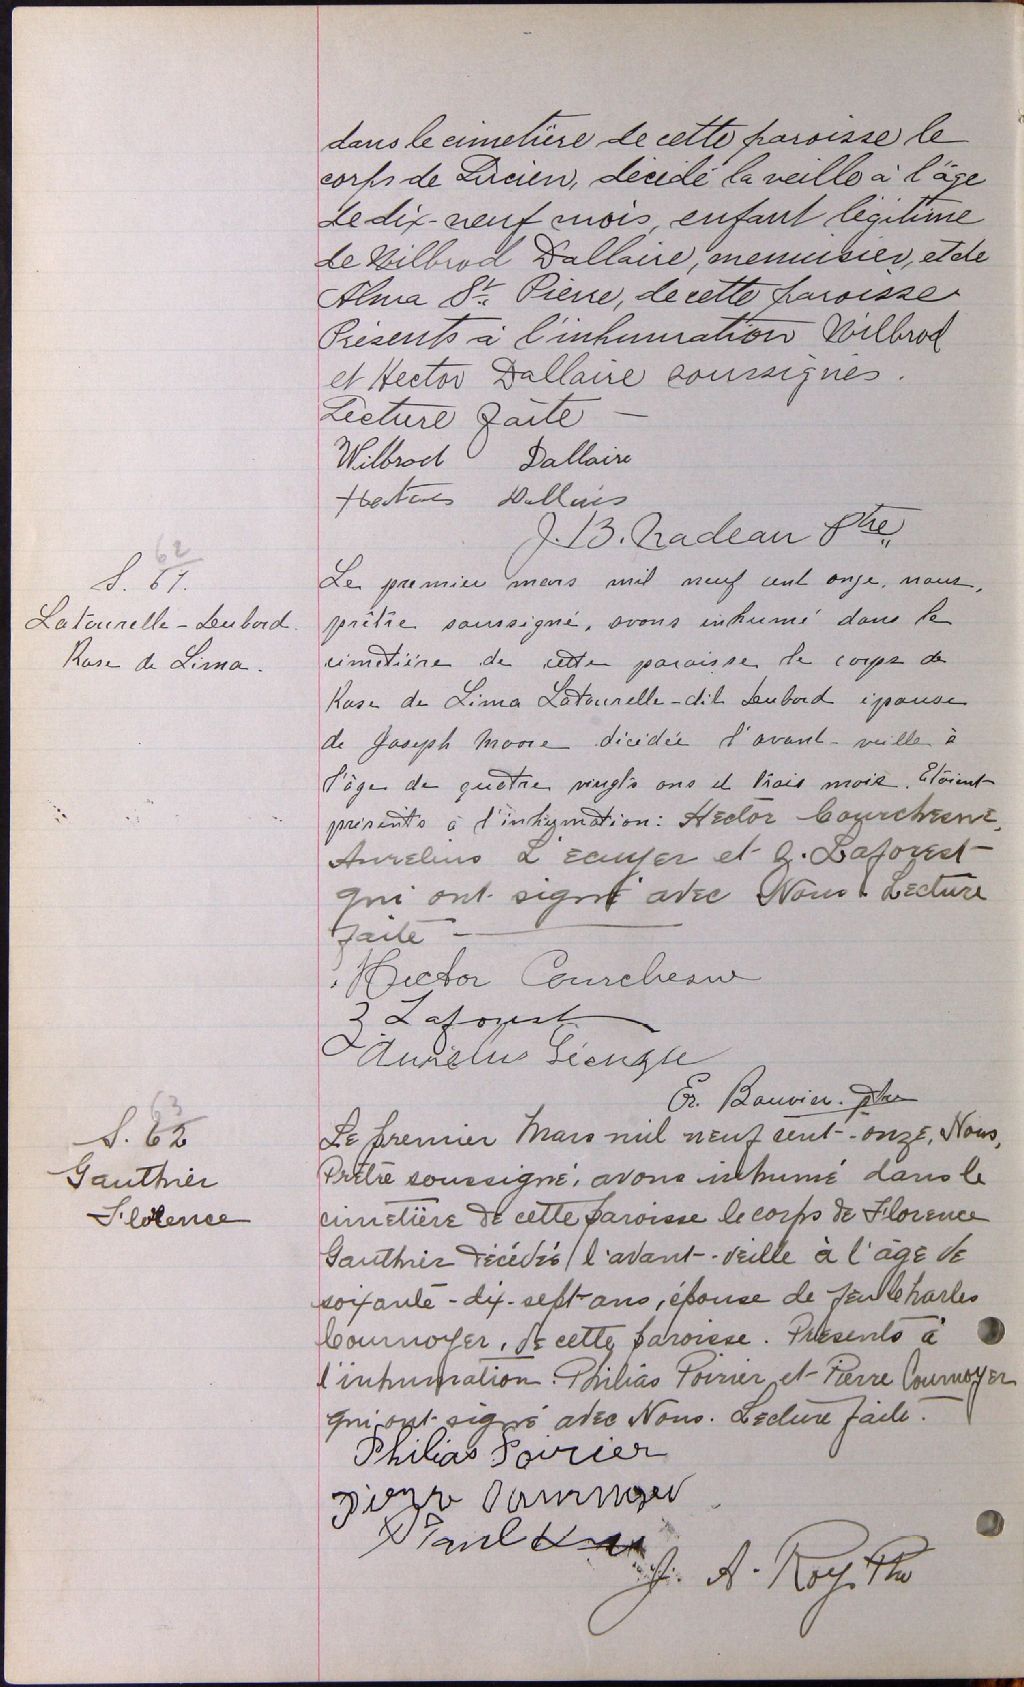 dans le cimetière de cette paroisse le
corps de Lucien, décédé la veille à l'âge
de dix-neuf mois, enfant légitime
de Wilbrod Dallaire, menuisier, et de
Alma St. Pierre, de cette paroisse
Présents à l'inhumation Wilbrod
et Hector Dallaire soussignés.
Lecture faite —
Wilbrod Dallaire
Hector Dallaire
J. B. Nadeau Ptre
62
S. 61.
Latourelle - Dubord.
Rose de Lima.
Le premier mars mil neuf cent onze, nous,
prêtre soussigné, avons inhumé dans le
cimetière de cette paroisse le corps de
Rose de Lima Latourelle-dit Dubord épouse
de Joseph Moore décédée l'avant-veille à
l'âge de quatre vingts ans et trois mois. Etaient
présents à l'inhumation: Hector Courchesne,
Aurelius L'ecuyer et Z. Laforest
qui ont signé avec Nous. Lecture
faite —
Hector Courchesne
Z Laforest
Aurelius
Er. Bouvier. ptre
63
S. 62
Gauthier
Florence
Le premier Mars mil neuf cent-onze, Nous,
Prêtre soussigné, avons inhumé dans le
cimetière de cette paroisse le corps de Florence
Gauthier décédée l'avant-veille à l'âge de
soixante-dix-sept ans, épouse de feu Charles
Cournoyer, de cette paroisse. Présents à
l'inhumation. Philias Poirier et Pierre Cournoyer
qui ont signé avec Nous. Lecture faite.
Philias Poirier
Pierre Cournoyer
Paul
J. A. Roy, Ptre